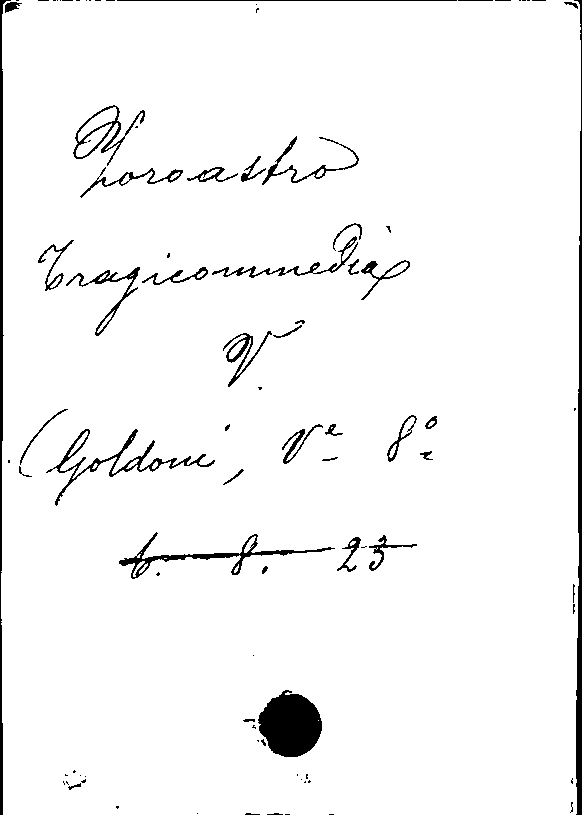 Zoroastro
Tragicommedia
V.
(Goldoni, Ve 8º
6. 8. 23